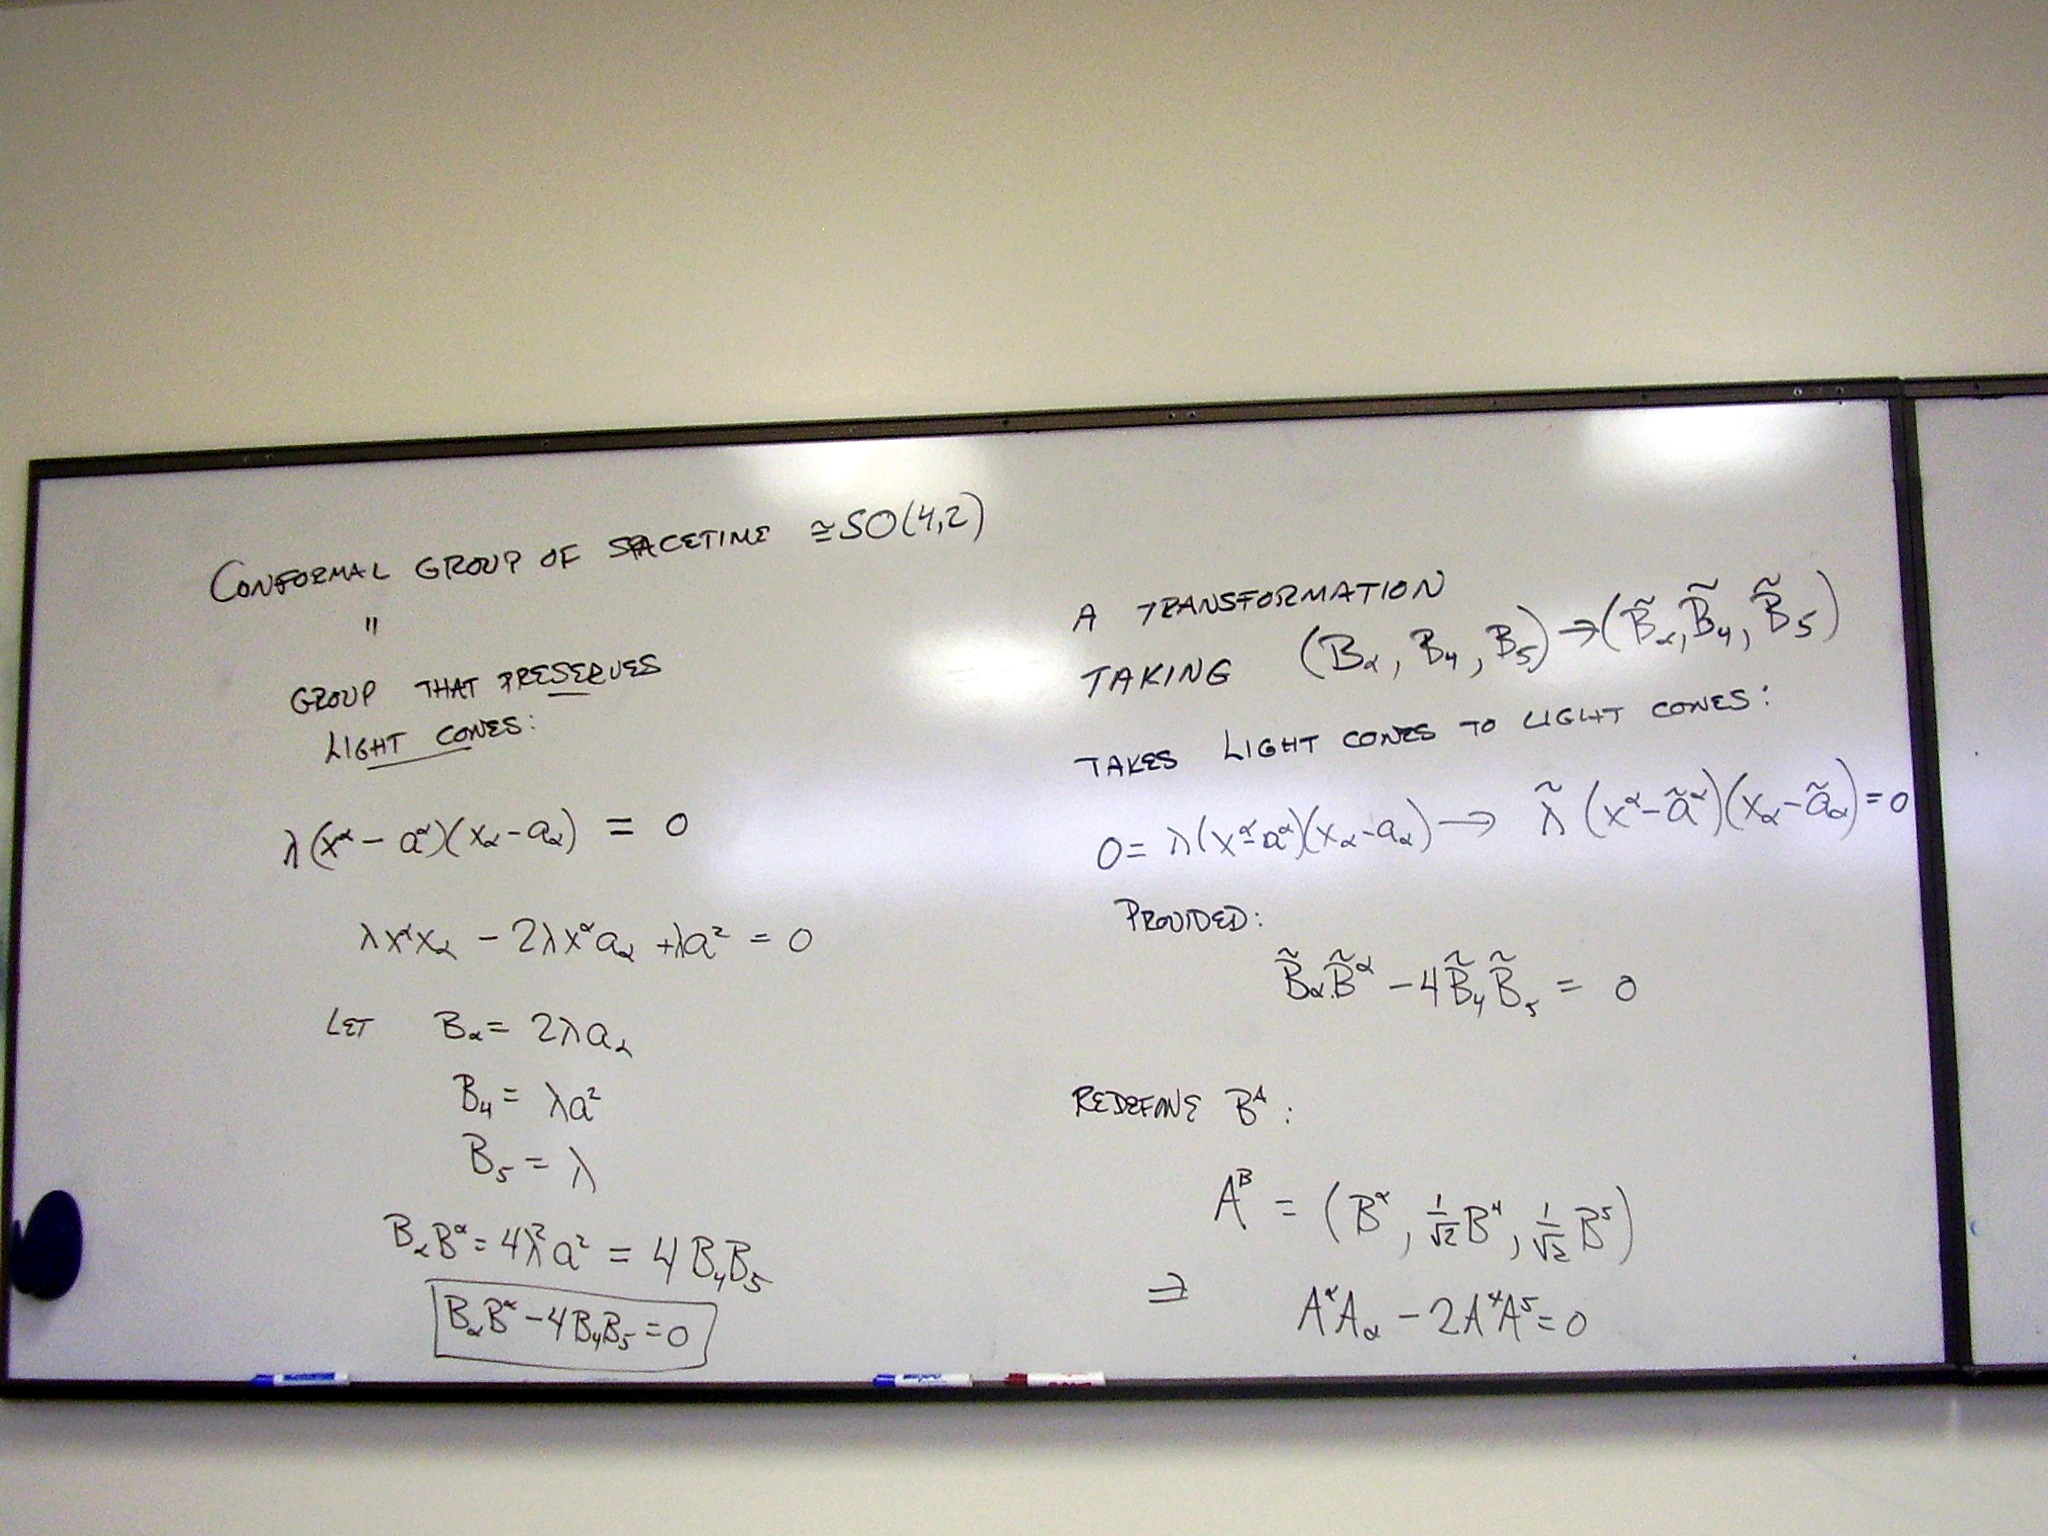 CONFORMAL GROUP OF SPACETIME ≅ SO(4,2)
"
GROUP THAT PRESERVES
LIGHT CONES:
λ(x^α − a^α)(x_α − a_α) = 0
λx^αx_α − 2λx^αa_α + λa² = 0
LET B_α = 2λa_α
B_4 = λa²
B_5 = λ
B_αB^α = 4λ²a² = 4B_4B_5
B_αB^α − 4B_4B_5 = 0
A TRANSFORMATION
TAKING (B_α, B_4, B_5) → (B̃_α, B̃_4, B̃_5)
TAKES LIGHT CONES TO LIGHT CONES:
0 = λ(x^α − a^α)(x_α − a_α) → λ̃(x^α − ã^α)(x_α − ã_α) = 0
PROVIDED:
B̃_αB̃^α − 4B̃_4B̃_5 = 0
REDEFINE B^A:
A^B = (B^α, 1/√2 B^4, 1/√2 B^5)
⇒ A^αA_α − 2A^4A^5 = 0